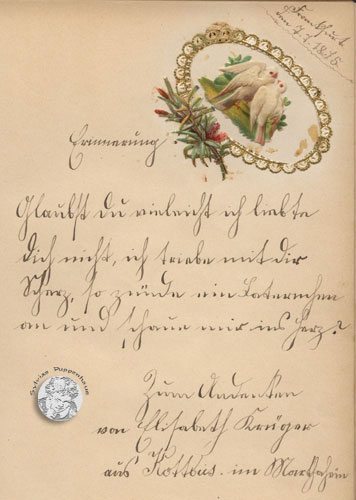 Erinnerung
Glaubst du vieleicht ich liebte
dich nicht, ich triebe mit dir
Scherz, so zünde ein Laternchen
an und schaue mir ins Herz?
Zum Andenken
von Elisabeth Krüger
aus Kottbus. im
Sylvias Puppenhaus